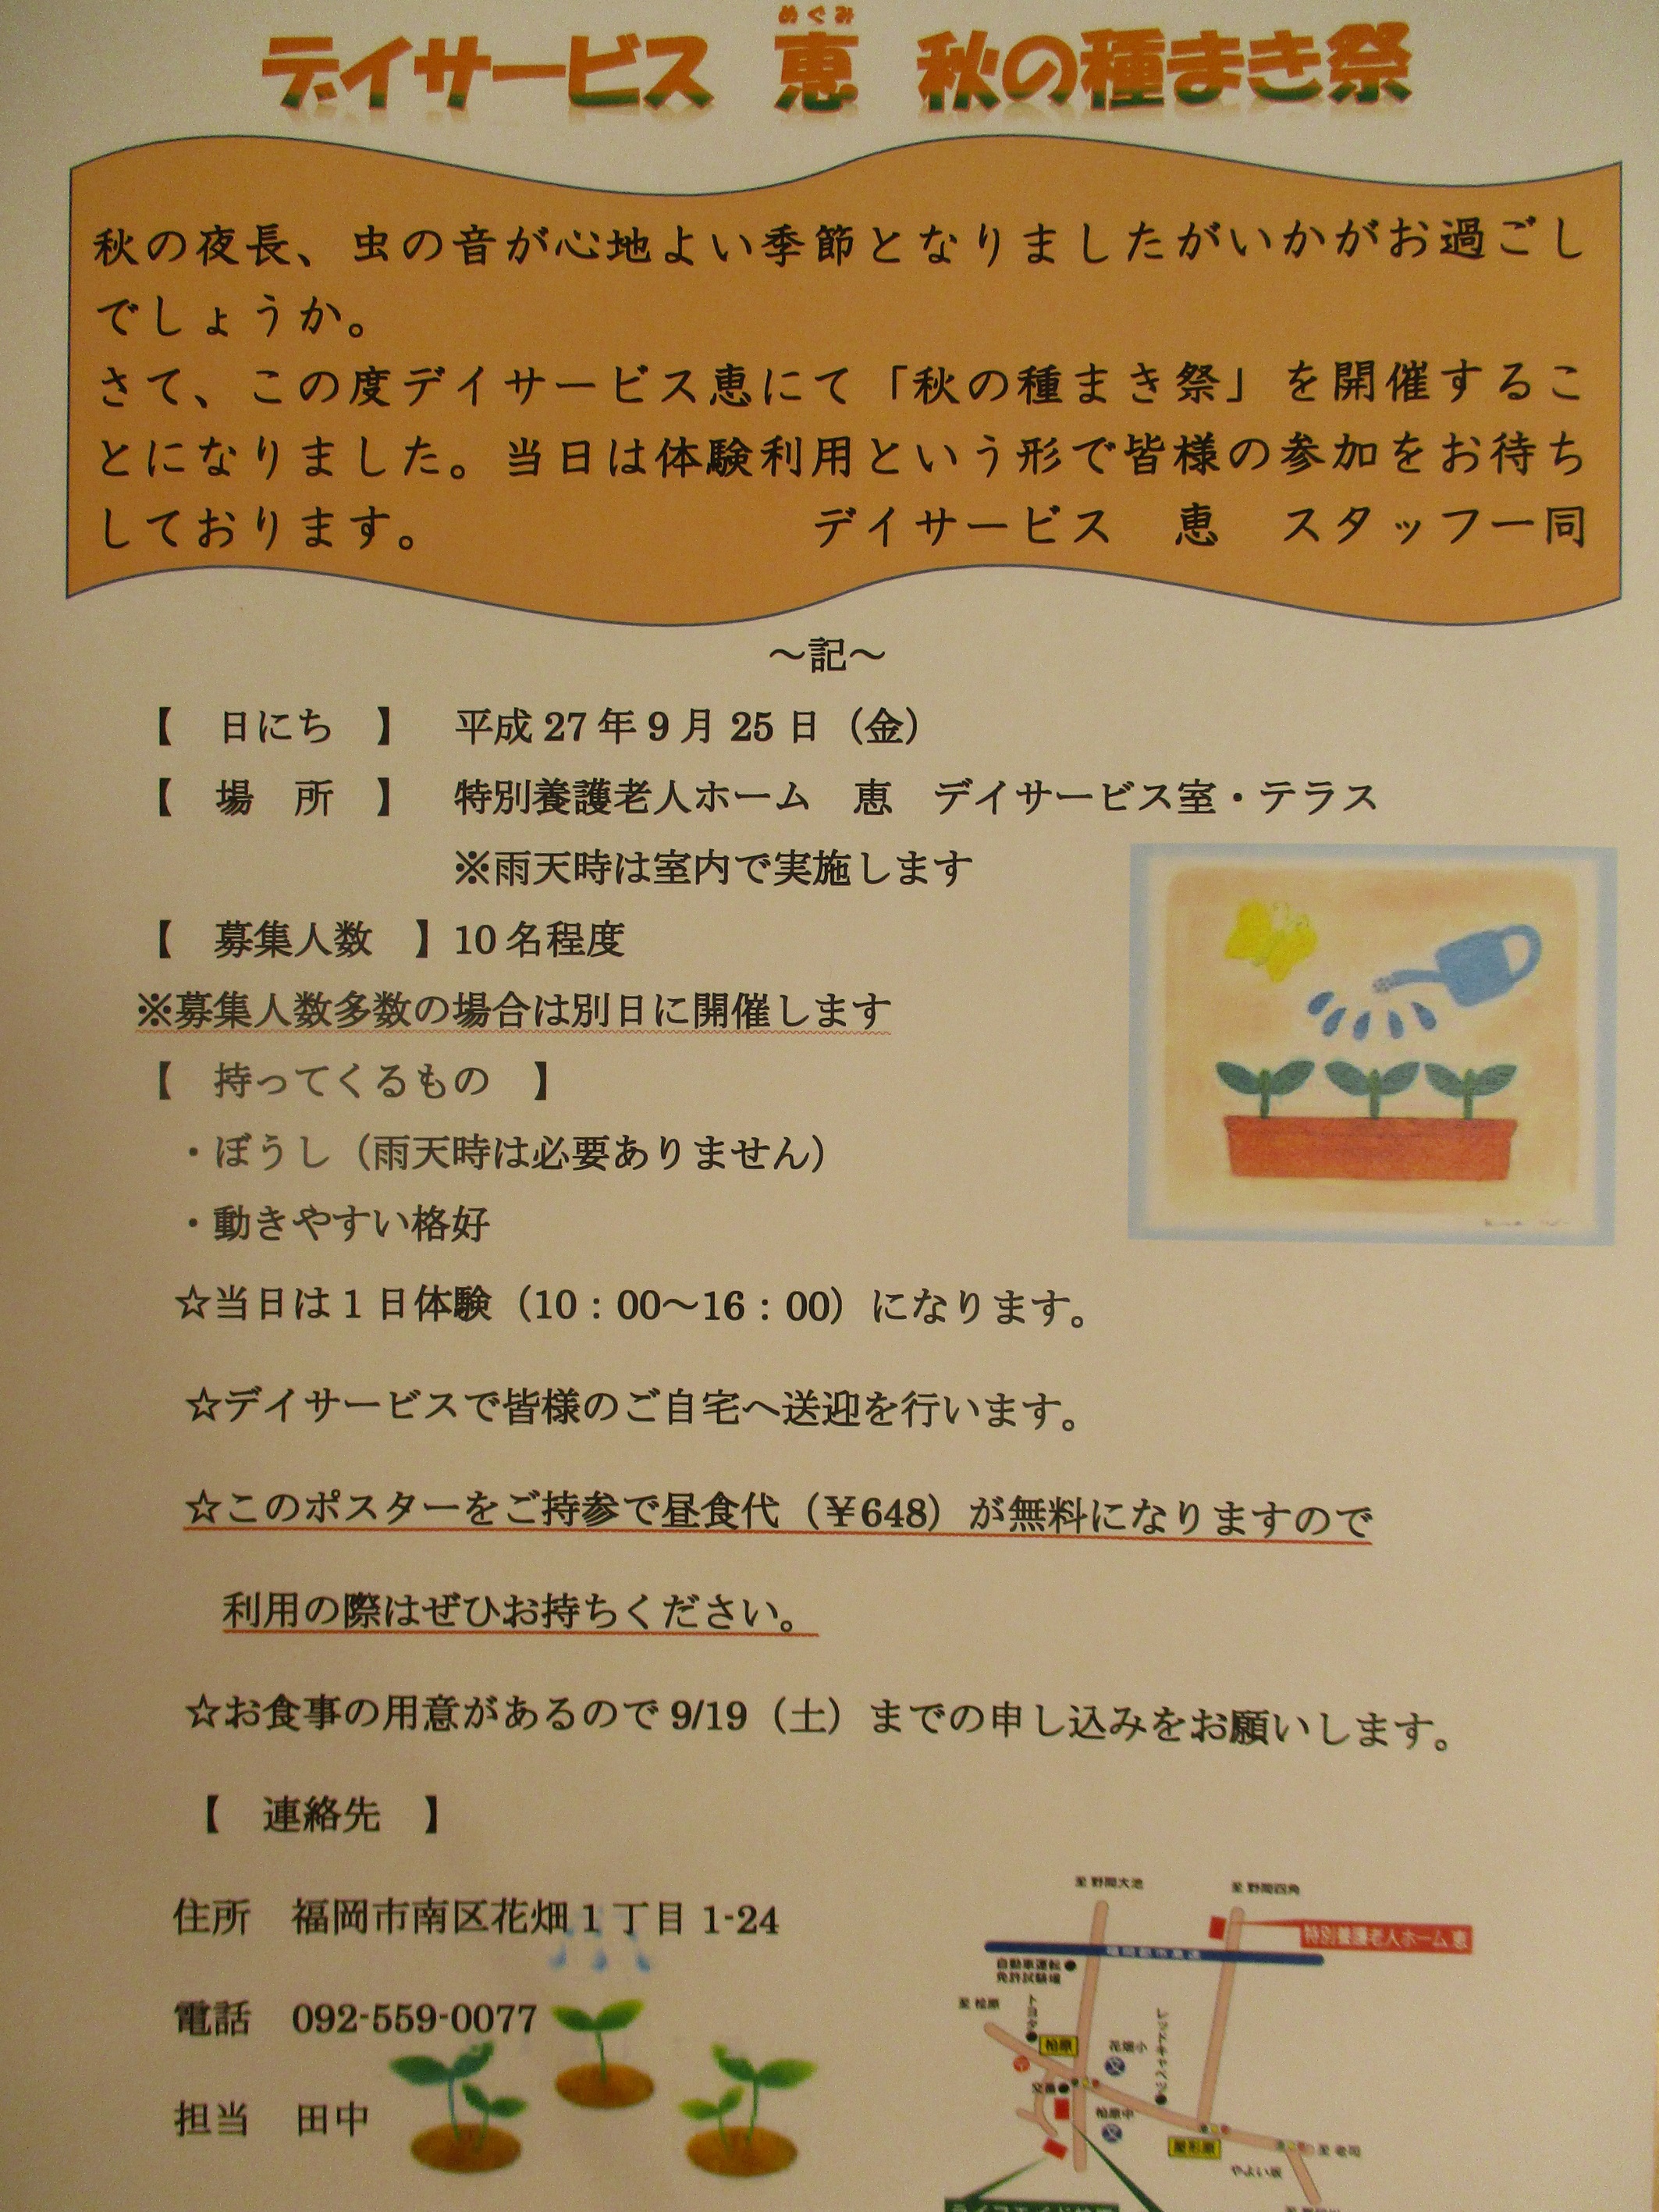 めぐみ
デイサービス 恵 秋の種まき祭
秋の夜長、虫の音が心地よい季節となりましたがいかがお過ごし
でしょうか。
さて、この度デイサービス恵にて「秋の種まき祭」を開催するこ
とになりました。当日は体験利用という形で皆様の参加をお待ち
しております。 デイサービス 恵 スタッフ一同
～記～
【 日にち 】 平成 27 年 9 月 25 日（金）
【 場 所 】 特別養護老人ホーム 恵 デイサービス室・テラス
※雨天時は室内で実施します
【 募集人数 】10 名程度
※募集人数多数の場合は別日に開催します
【 持ってくるもの 】
・ぼうし（雨天時は必要ありません）
・動きやすい格好
☆当日は 1 日体験（10：00～16：00）になります。
☆デイサービスで皆様のご自宅へ送迎を行います。
☆このポスターをご持参で昼食代（￥648）が無料になりますので
利用の際はぜひお持ちください。
☆お食事の用意があるので 9/19（土）までの申し込みをお願いします。
【 連絡先 】
住所 福岡市南区花畑 1 丁目 1-24
電話 092-559-0077
担当 田中
至 野間大池
至 野間四角
特別養護老人ホーム 恵
福岡都市高速
自動車運転
免許試験場
至 桧原
トヨタ
柏原
花畑小
交番
柏原中
屋形原
至 老司
やよい坂